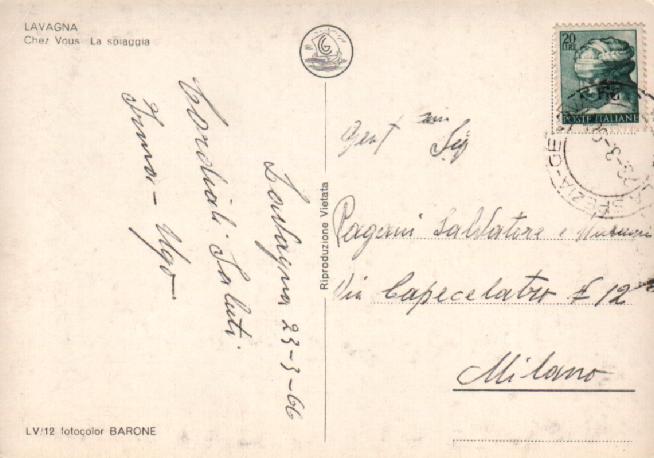 LAVAGNA
Chez Vous La spiaggia
Lavagna 23-3-66
Cordiali Saluti
Irma - Ugo
LV/12 fotocolor BARONE
Riproduzione Vietata
20
LIRE
POSTE ITALIANE
SPEZIA-GENOVA
23-3
Gent mi Sig
Pagani Salvatore e
Via Capecelatro 12
Milano